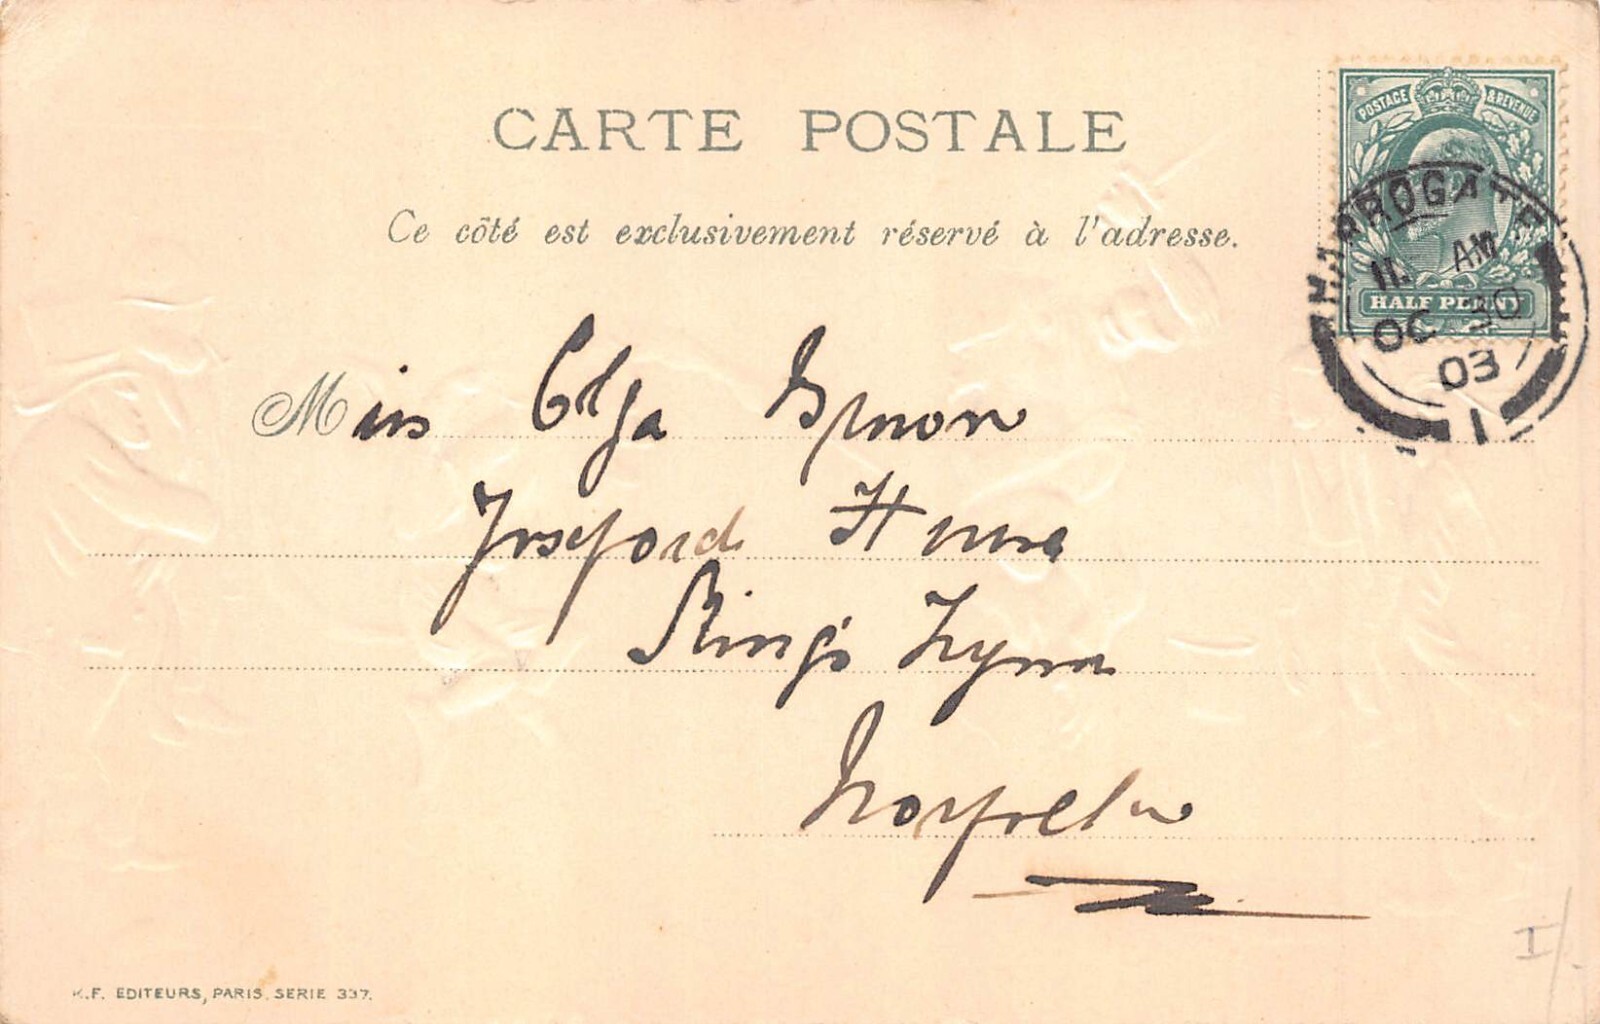 CARTE POSTALE
Ce côté est exclusivement réservé à l'adresse.
POSTAGE & REVENUE
HALF PENNY
HARROGATE
11. AM
OC 30
03
1
Miss Olga
House
King's Lynn
Norfolk
I/.
K.F. EDITEURS, PARIS. SERIE 337.